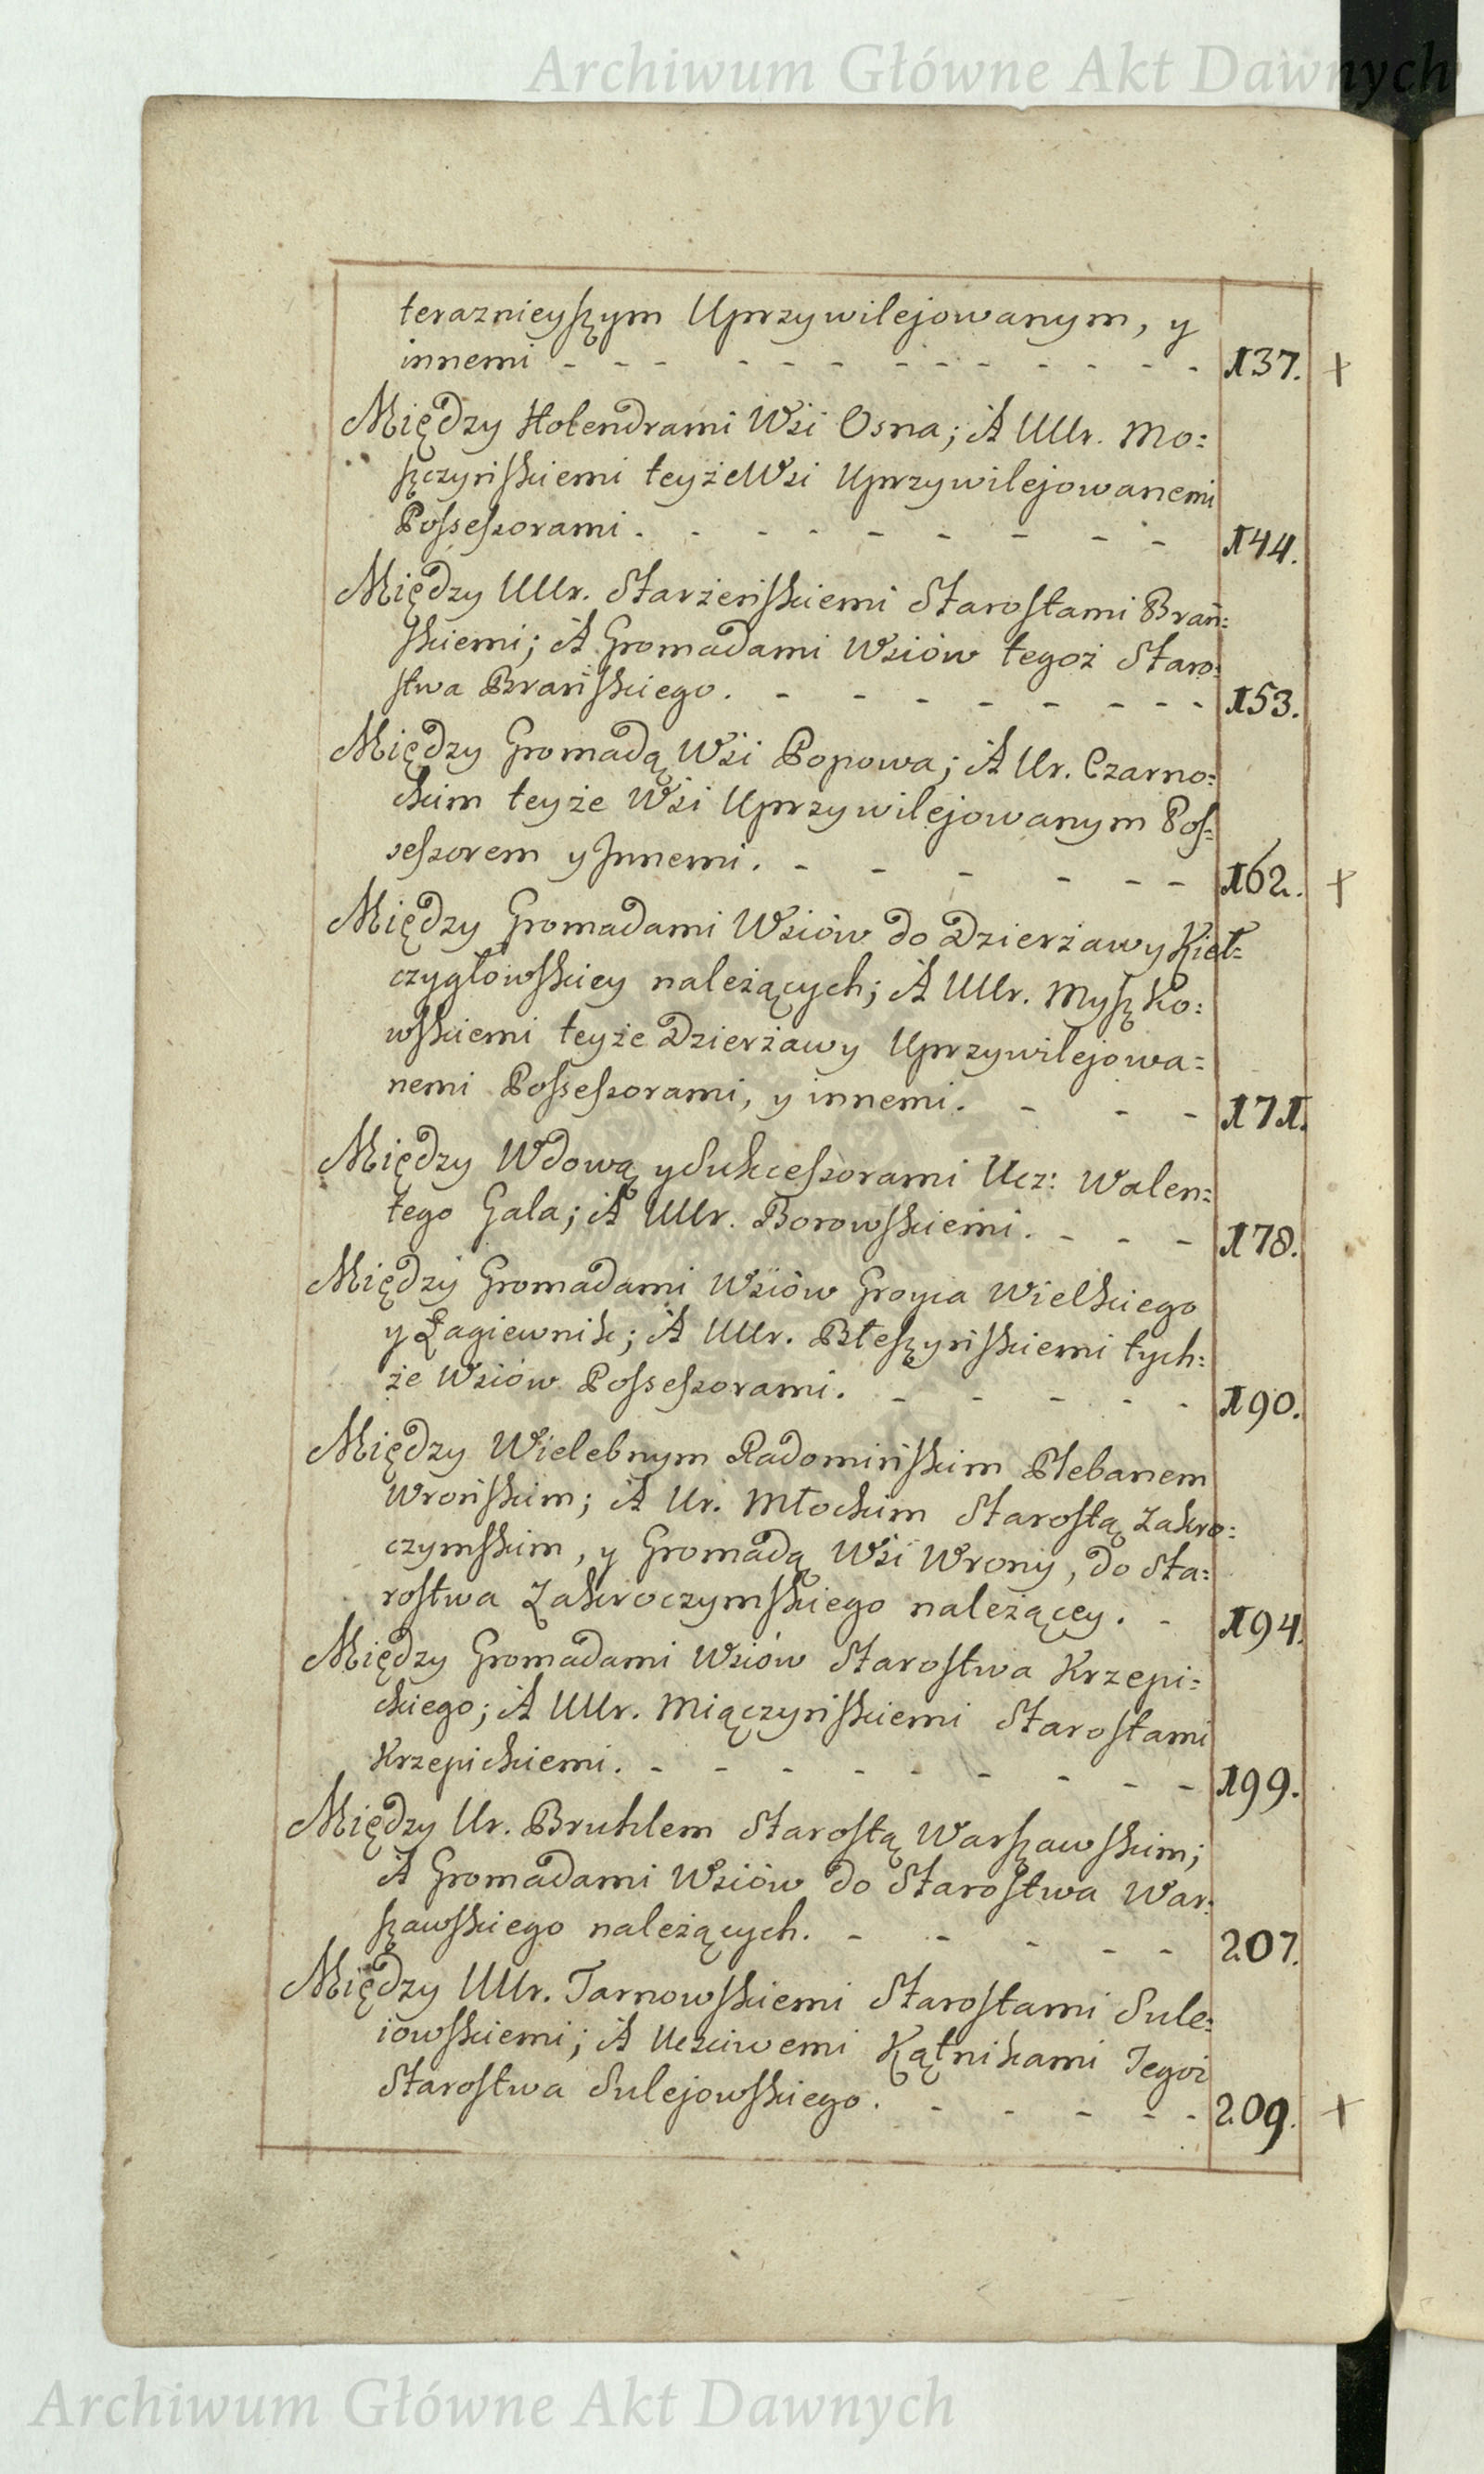 Archiwum Główne Akt Dawnych
teraznieyszym Uprzywilejowanym, y
innemi - - - - - - - - - - - - 137. +
Między Holendrami Wsi Osna; A UUr. Mo:
szczyńskiemi teyże Wsi Uprzywilejowanemi
Possessorami. - - - - - - - - 144.
Między UUr. Starzeńskiemi Starostami Brań:
skiemi; A Gromadami Wsiów tegoż Staro:
stwa Brańskiego. - - - - - - - - 153.
Między Gromadą Wsi Popowa; A Ur. Czarno:
ckim teyże Wsi Uprzywilejowanym Pos:
sessorem y Innemi. - - - - - - 162. +
Między Gromadami Wsiów do Dzierżawy Kieł:
czygłowskiey należących; A UUr. Myszko:
wskiemi teyże Dzierżawy Uprzywilejowa:
nemi Possessorami, y innemi. - - - 171.
Między Wdową y Sukcessorami Ucz: Walen:
tego Gala; A UUr. Borowskiemi. - - - 178.
Między Gromadami Wsiów Groyca Wielkiego
y Łagiewnik; A UUr. Błeszyńskiemi tych:
że Wsiów Possessorami. - - - - - 190.
Między Wielebnym Radomińskim Plebanem
Wrońskim; A Ur. Młockim Starostą Zakro:
czymskim, y Gromadą Wsi Wrony, do Sta:
rostwa Zakroczymskiego należącey. - 194.
Między Gromadami Wsiów Starostwa Krzepi:
ckiego; A UUr. Miączyńskiemi Starostami
Krzepickiemi. - - - - - - - - - 199.
Między Ur. Bruhlem Starostą Warszawskim;
A Gromadami Wsiów do Starostwa War:
szawskiego należących. - - - - - 207.
Między UUr. Tarnowskiemi Starostami Sule:
iowskiemi; A Uczciwemi Kątnikami Tegoż
Starostwa Sulejowskiego. - - - - - 209. +
Archiwum Główne Akt Dawnych